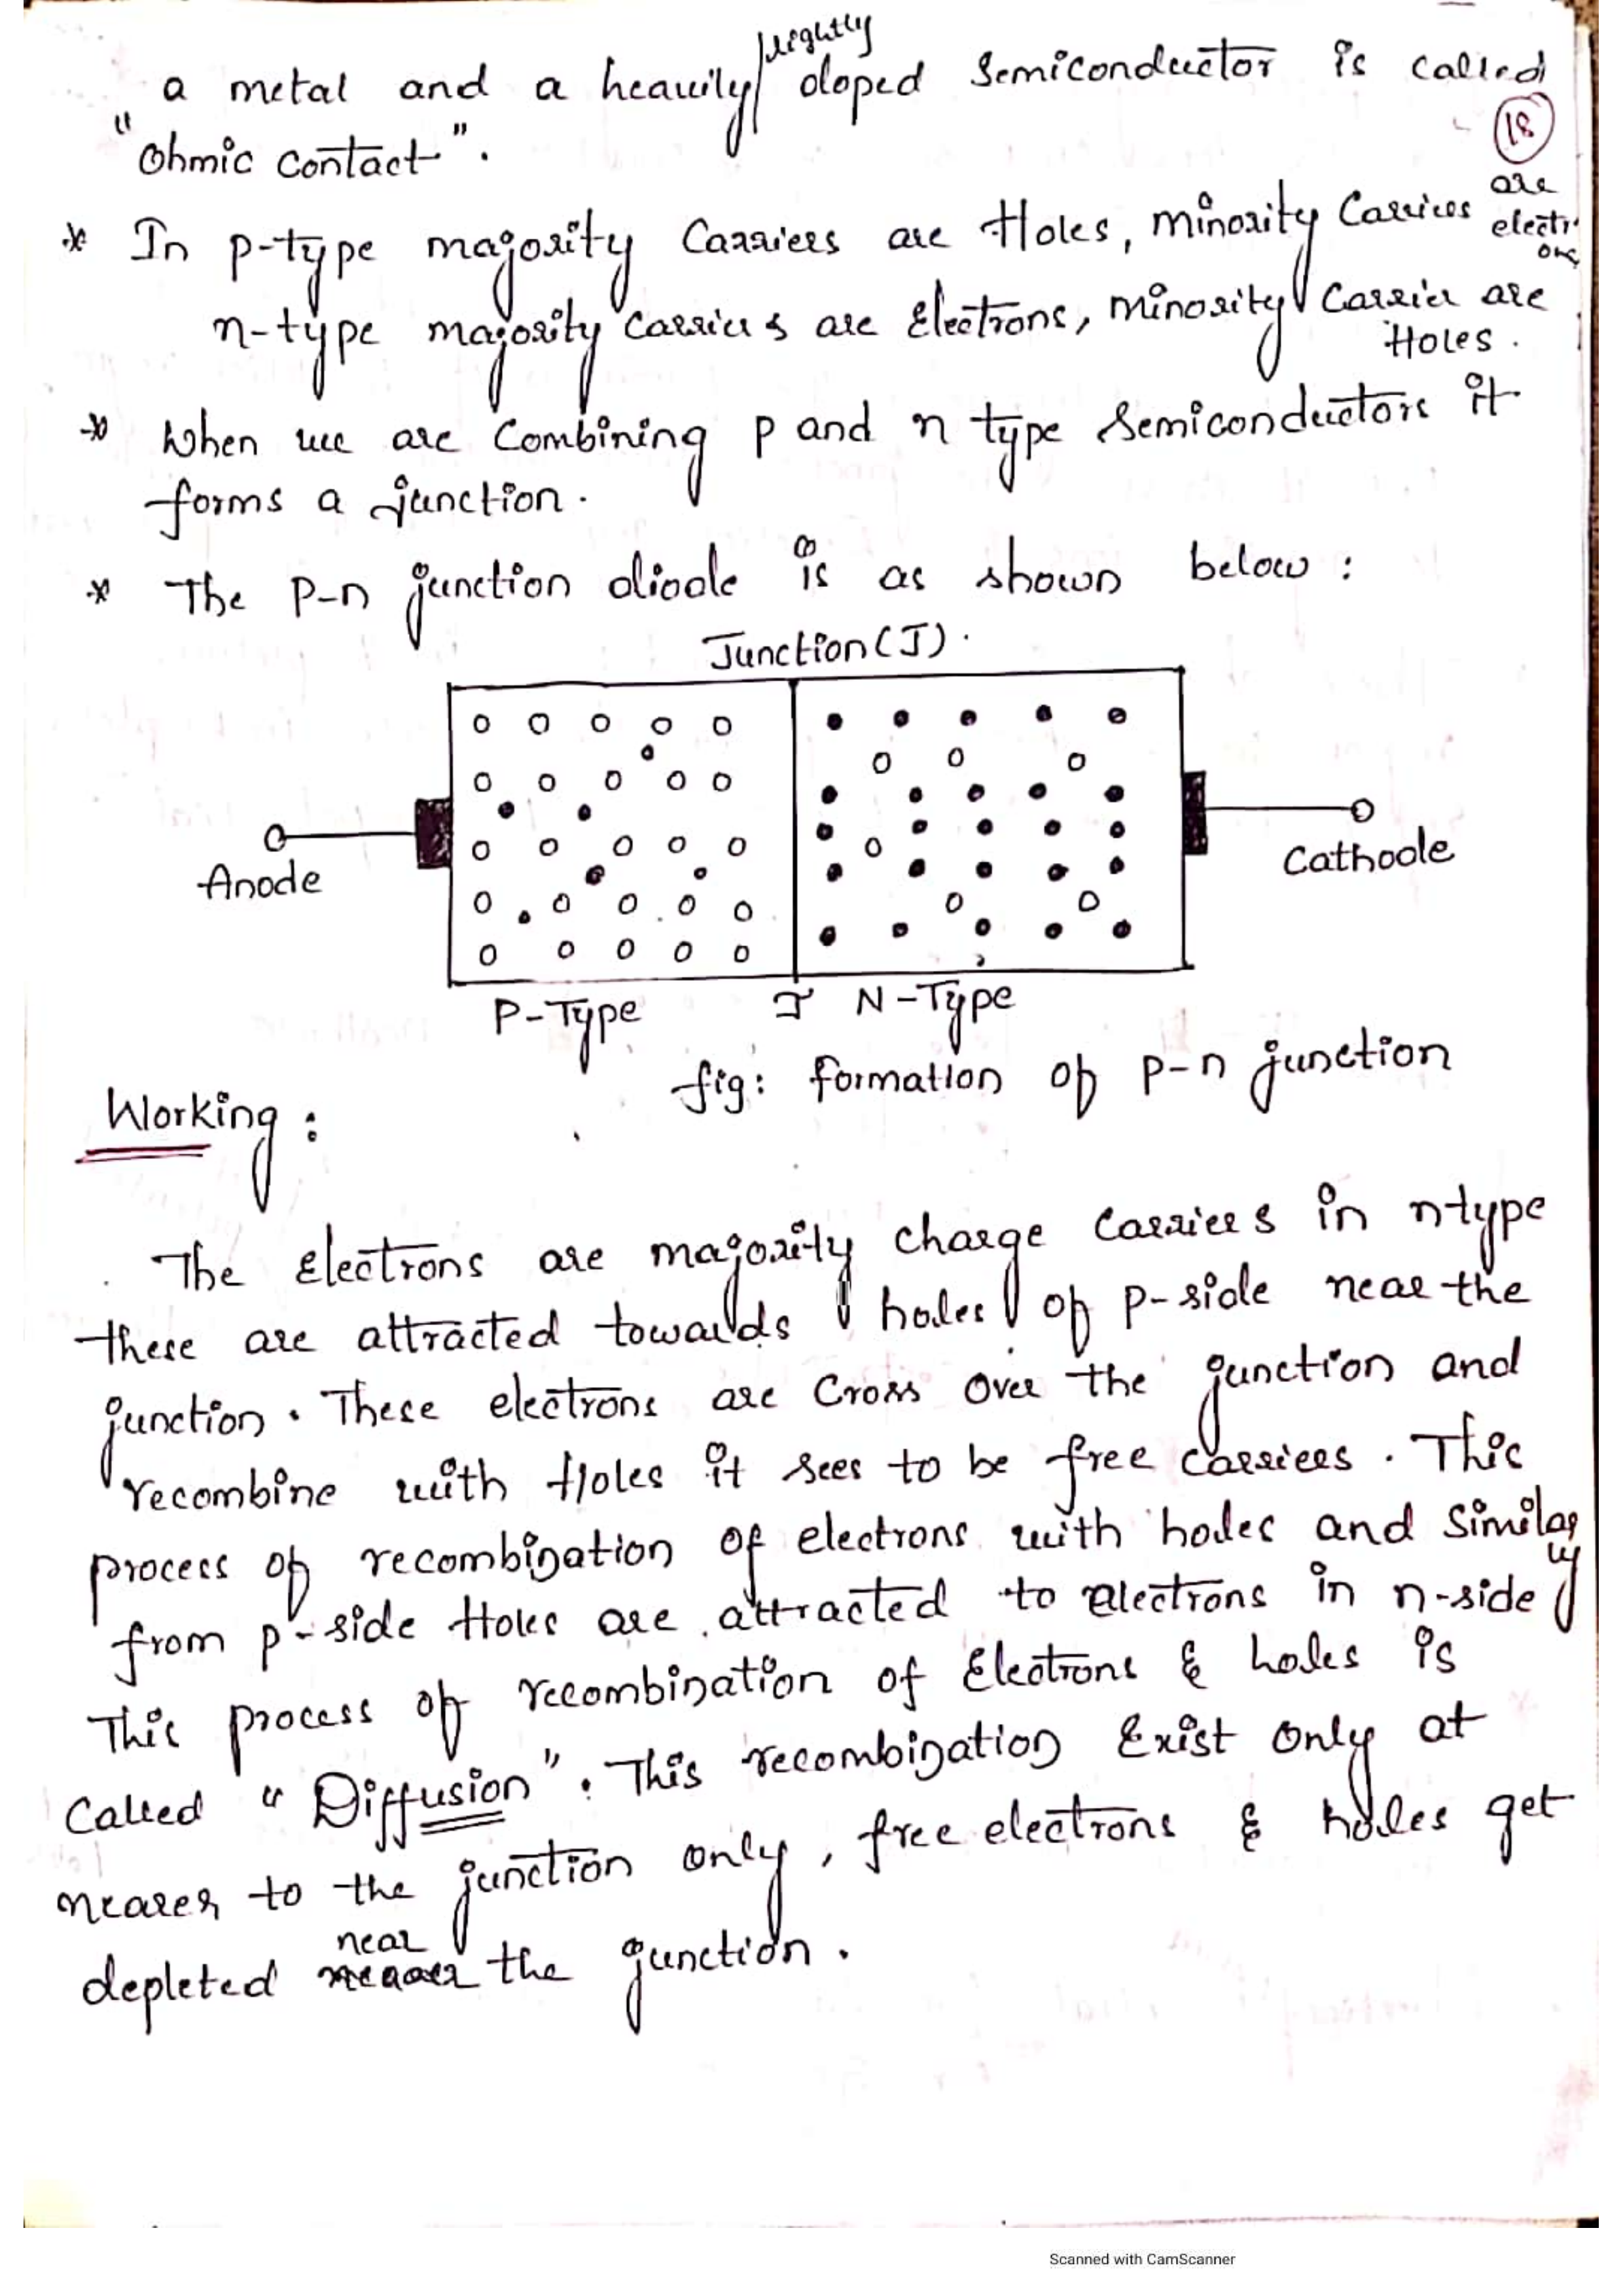 lightly
a metal and a heavily/ doped Semiconductor is called
"Ohmic Contact".
18
* In p-type majority Carriers are Holes, minority Carriers are electrons
n-type majority Carriers are Electrons, minority Carrier are Holes.
* When we are Combining p and n type Semiconductors it
forms a junction.
* The P-n junction diode is as shown below:
Junction (J).
Anode
Cathode
P-Type J N-Type
fig: formation of p-n junction
Working:
The Electrons are majority charge Carriers in n-type
these are attracted towards holes of p-side near the
junction. These electrons are Cross Over the junction and
recombine with Holes it sees to be free carriers. This
process of recombination of electrons with holes and Similarly
from p-side Holes are attracted to electrons in n-side
This process of recombination of Electrons & holes is
Called "Diffusion". This recombination Exist Only at
nearer to the junction only, free electrons & holes get
near
depleted the junction.
Scanned with CamScanner